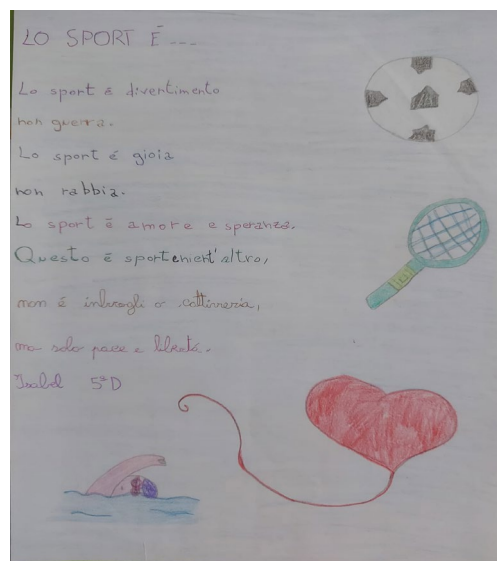 LO SPORT É...
Lo sport é divertimento
non guerra.
Lo sport é gioia
non rabbia.
Lo sport é amore e speranza.
Questo é sportenient'altro,
non é imbrogli o cattiveria,
ma solo pace e libertá.
Isabel 5ªD